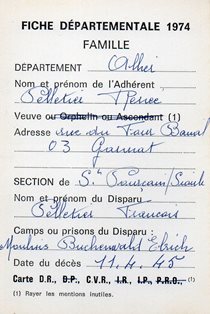 FICHE DÉPARTEMENTALE 1974
FAMILLE
DÉPARTEMENT Allier
Nom et prénom de l'Adhérent
Pelletier Renée
Veuve ou Orphelin ou Ascendant (1)
Adresse rue du Four Banal
03 Gannat
SECTION de St Pourçain/Sioule
Nom et prénom du Disparu
Pelletier Francois
Camps ou prisons du Disparu :
Moulins Buchenwald Elrich
Date du décès 11.4.45
Carte D.R., D.P., C.V.R., I.R., I.P., P.R.O., (1)
(1) Rayer les mentions inutiles.